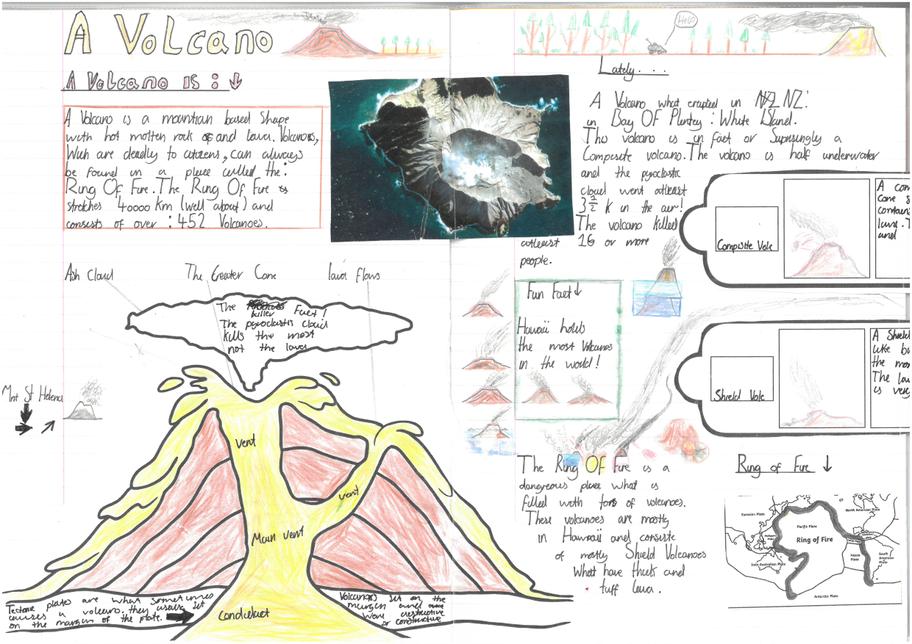 A Volcano
A Volcano is : ↓
A Volcano is a mountian based shape
with hot molten rock and lava. Volcanos,
Wich are deadly to citazens, can always
be found in a place called the:
Ring Of Fire. The Ring Of Fire is
stretches 40000 Km (well about) and
consists of over : 452 Volcanoes.
Ash Cloud
The Creater Cone
lava Flows
The killer Fact!
The pyroclastic Cloud
kills the most
not the lava
Mnt St Helens
Vent
vent
Main vent
Condiduct
Tectonic plates are what sometimes
causes a volcano. they usually sit
on the margin of the plate.
Volcanoes set on the
margin and
were destructive
or constructive
Hello
Lately...
A Volcano what erapted in NZ:
in Bay OF Plenty: White Island.
This volcano is in fact or Suprisingly a
Composite volcano. The volcano is half underwater
and the pyroclastic
cloud went atleast
3½ k in the air!
The volcano killed
atleast 16 or more
people.
Fun Fact ↓
Hawaii holds
the most Volcanoes
in the world!
Composite Volc
A con
cone s
contain
lava. T
and
Shield Volc
A Shield
like bu
the mo
The lav
is very
The Ring OF Fire is a
dangreous place what is
filled with tons of volcanoes.
These volcanoes are mostly
in Hawaii and consiste
of mostly Shield Volcanoes
What have thick and
tuff lava.
Ring of Fire ↓
Eurasian Plate
North American Plate
Pacific Plate
Ring of Fire
Indo-Australian Plate
Nazca Plate
South American Plate
Antarctic Plate